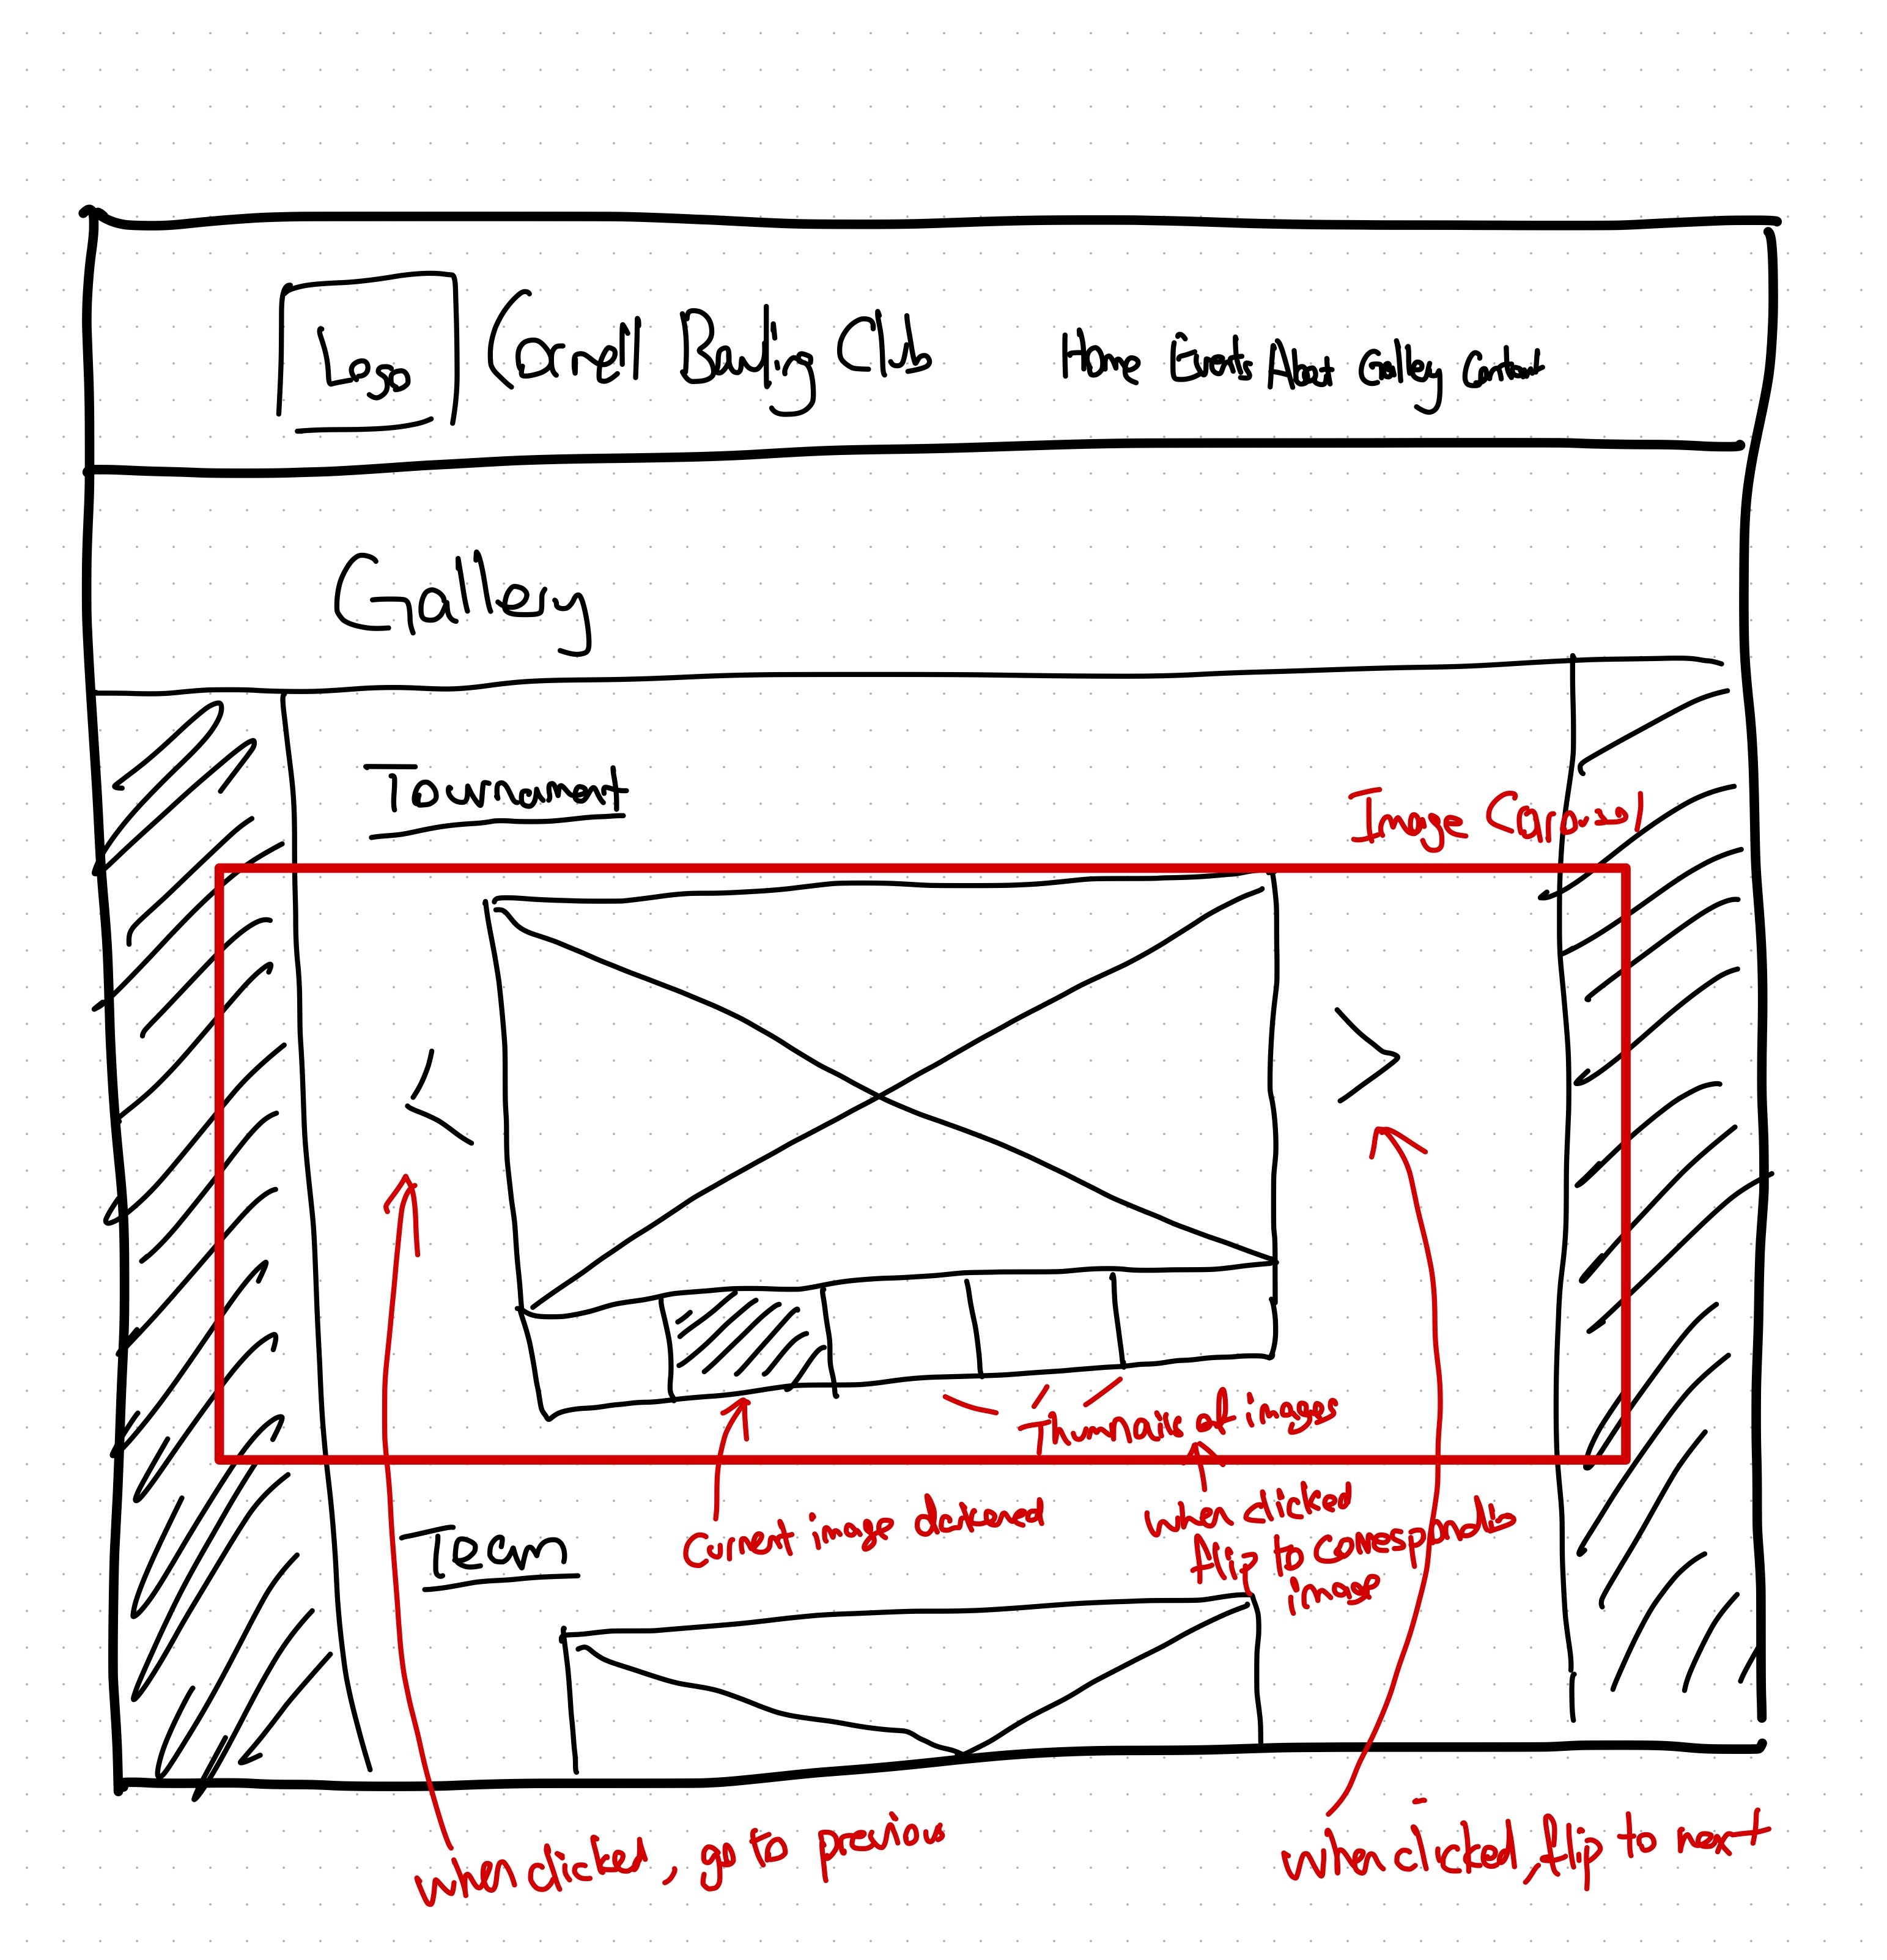 Logo
Cornell Bowling Club
Home Events About Gallery Contact
Gallery
Tournament
Image Carousel
Thumnails of images
Current image darkened
when clicked
flip to corresponding
image
Team
when clicked, go to previous
when clicked, flip to next